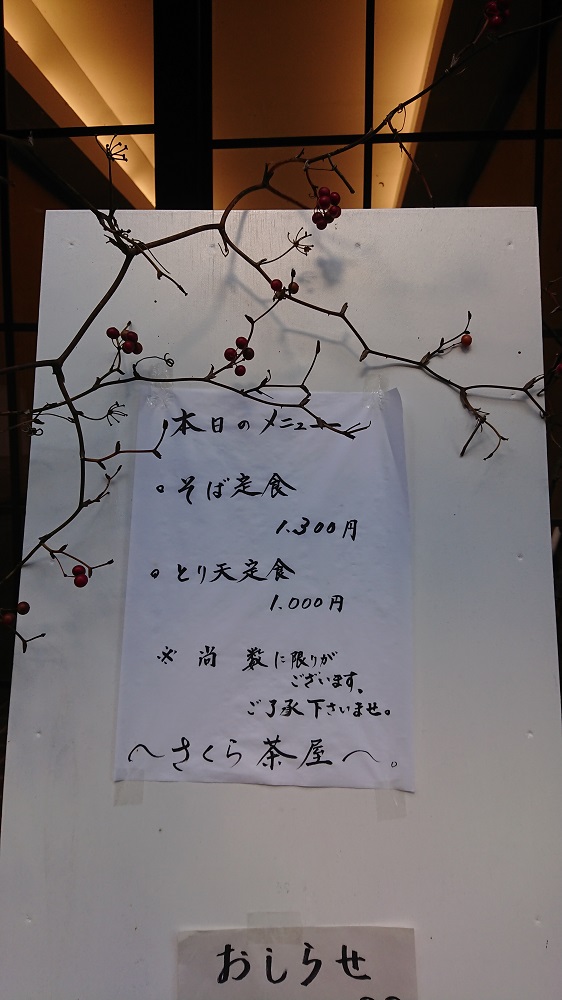 本日のメニュー
。そば定食
1.300円
。とり天定食
1.000円
※尚 数に限りが
ございます、
ご了承下さいませ。
〜さくら茶屋〜。
おしらせ